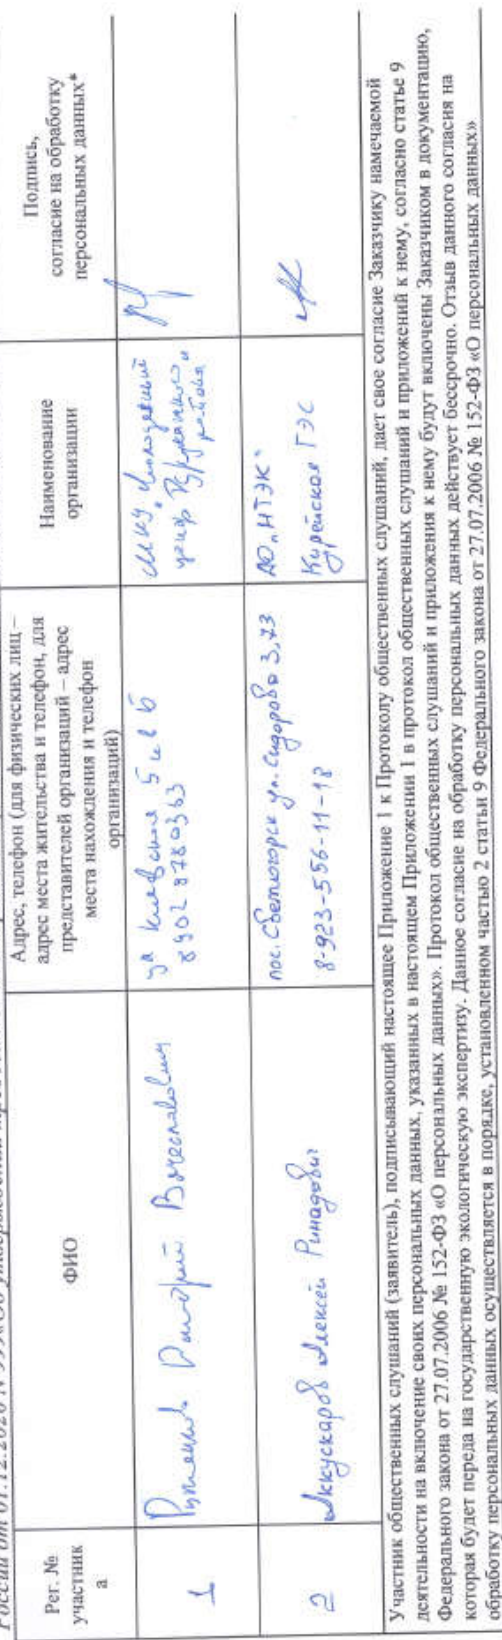 России от 01.12.2020 N 999 «Об утверждении
Рег. №
участник
а
ФИО
Адрес, телефон (для физических лиц –
адрес места жительства и телефон, для
представителей организаций – адрес
места нахождения и телефон
организаций)
Наименование
организации
Подпись,
согласие на обработку
персональных данных*
1
Дмитрий Вячеславович
ул Киевская
МКУ "Молодежный
центр Туруханского
района
2
Аккускаров Алексей Ринадович
пос. Светлогорск ул. Сидорова 3, 73
8-923-556-11-18
АО „НТЭК"
Курейская ГЭС
Участник общественных слушаний (заявитель), подписывающий настоящее Приложение 1 к Протоколу общественных слушаний, дает свое согласие Заказчику намечаемой
деятельности на включение своих персональных данных, указанных в настоящем Приложении 1 в протокол общественных слушаний и приложений к нему, согласно статье 9
Федерального закона от 27.07.2006 № 152-ФЗ «О персональных данных». Протокол общественных слушаний и приложения к нему будут включены Заказчиком в документацию,
которая будет переда на государственную экологическую экспертизу. Данное согласие на обработку персональных данных действует бессрочно. Отзыв данного согласия на
обработку персональных данных осуществляется в порядке, установленном частью 2 статьи 9 Федерального закона от 27.07.2006 № 152-ФЗ «О персональных данных»